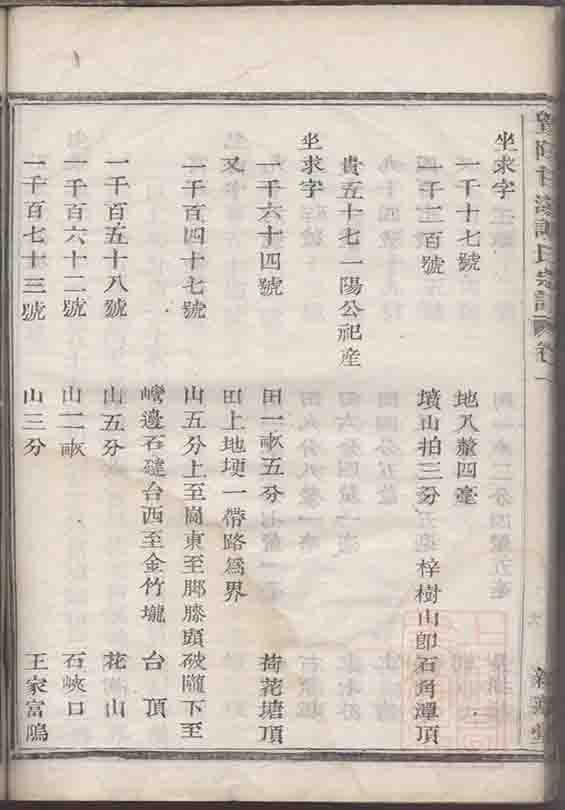 氏宗譜 卷一
坐求字
一千十七號 地八釐四毫
一千二百號 墳山拍三分 梓樹山卽石角潭頂
貴五十七一陽公祀産
坐求字
一千六十四號 田一畝五分 荷花塘頂
又 田上地埂一帶路爲界
一千百四十七號 山五分上至崗東至脚膝頭破隴下至
邊石磹台西至金竹壠 台頂
一千百五十八號 山五分 花山
一千百六十二號 山一畝 石峽口
一千百七十三號 山三分 王家富隖